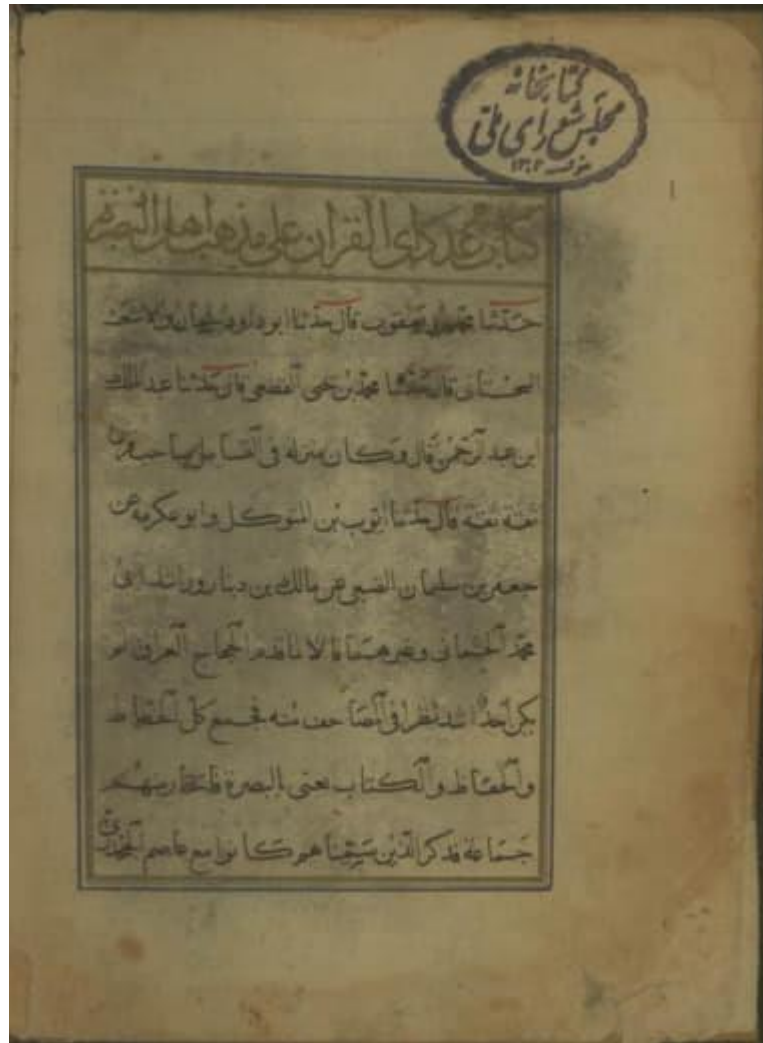 كتابخانه
مجلس شورای ملی
١٣٠٢
كتاب عدد آی القرآن علی مذهب اهل البصرة
حدثنا محمد بن يعقوب قال حدثنا ابو داود سليمان والاشعث
السجستانی قال حدثنا محمد بن يحی القطعی قال حدثنا عبد الملك
ابن عبد الرحمن قال وكان منزله فی القسامل صاحب قران
ثقة ثقة قال حدثنا ايوب بن المتوكل وابو عكرمه عن
جعفر بن سليمان الضبعی عن مالك بن دينار وراشد ابی
محمد الحمانی وغيرهما قالا لما قدم الحجاج العراق لم
يكن احد اشد نظرا فی المصاحف منه فجمع كل الحفاظ
والحفاظ والكتاب يعنی بالبصرة فاختار منهم
جماعة فذكر الذين سمينا هم كانوا مع عاصم الجحدری